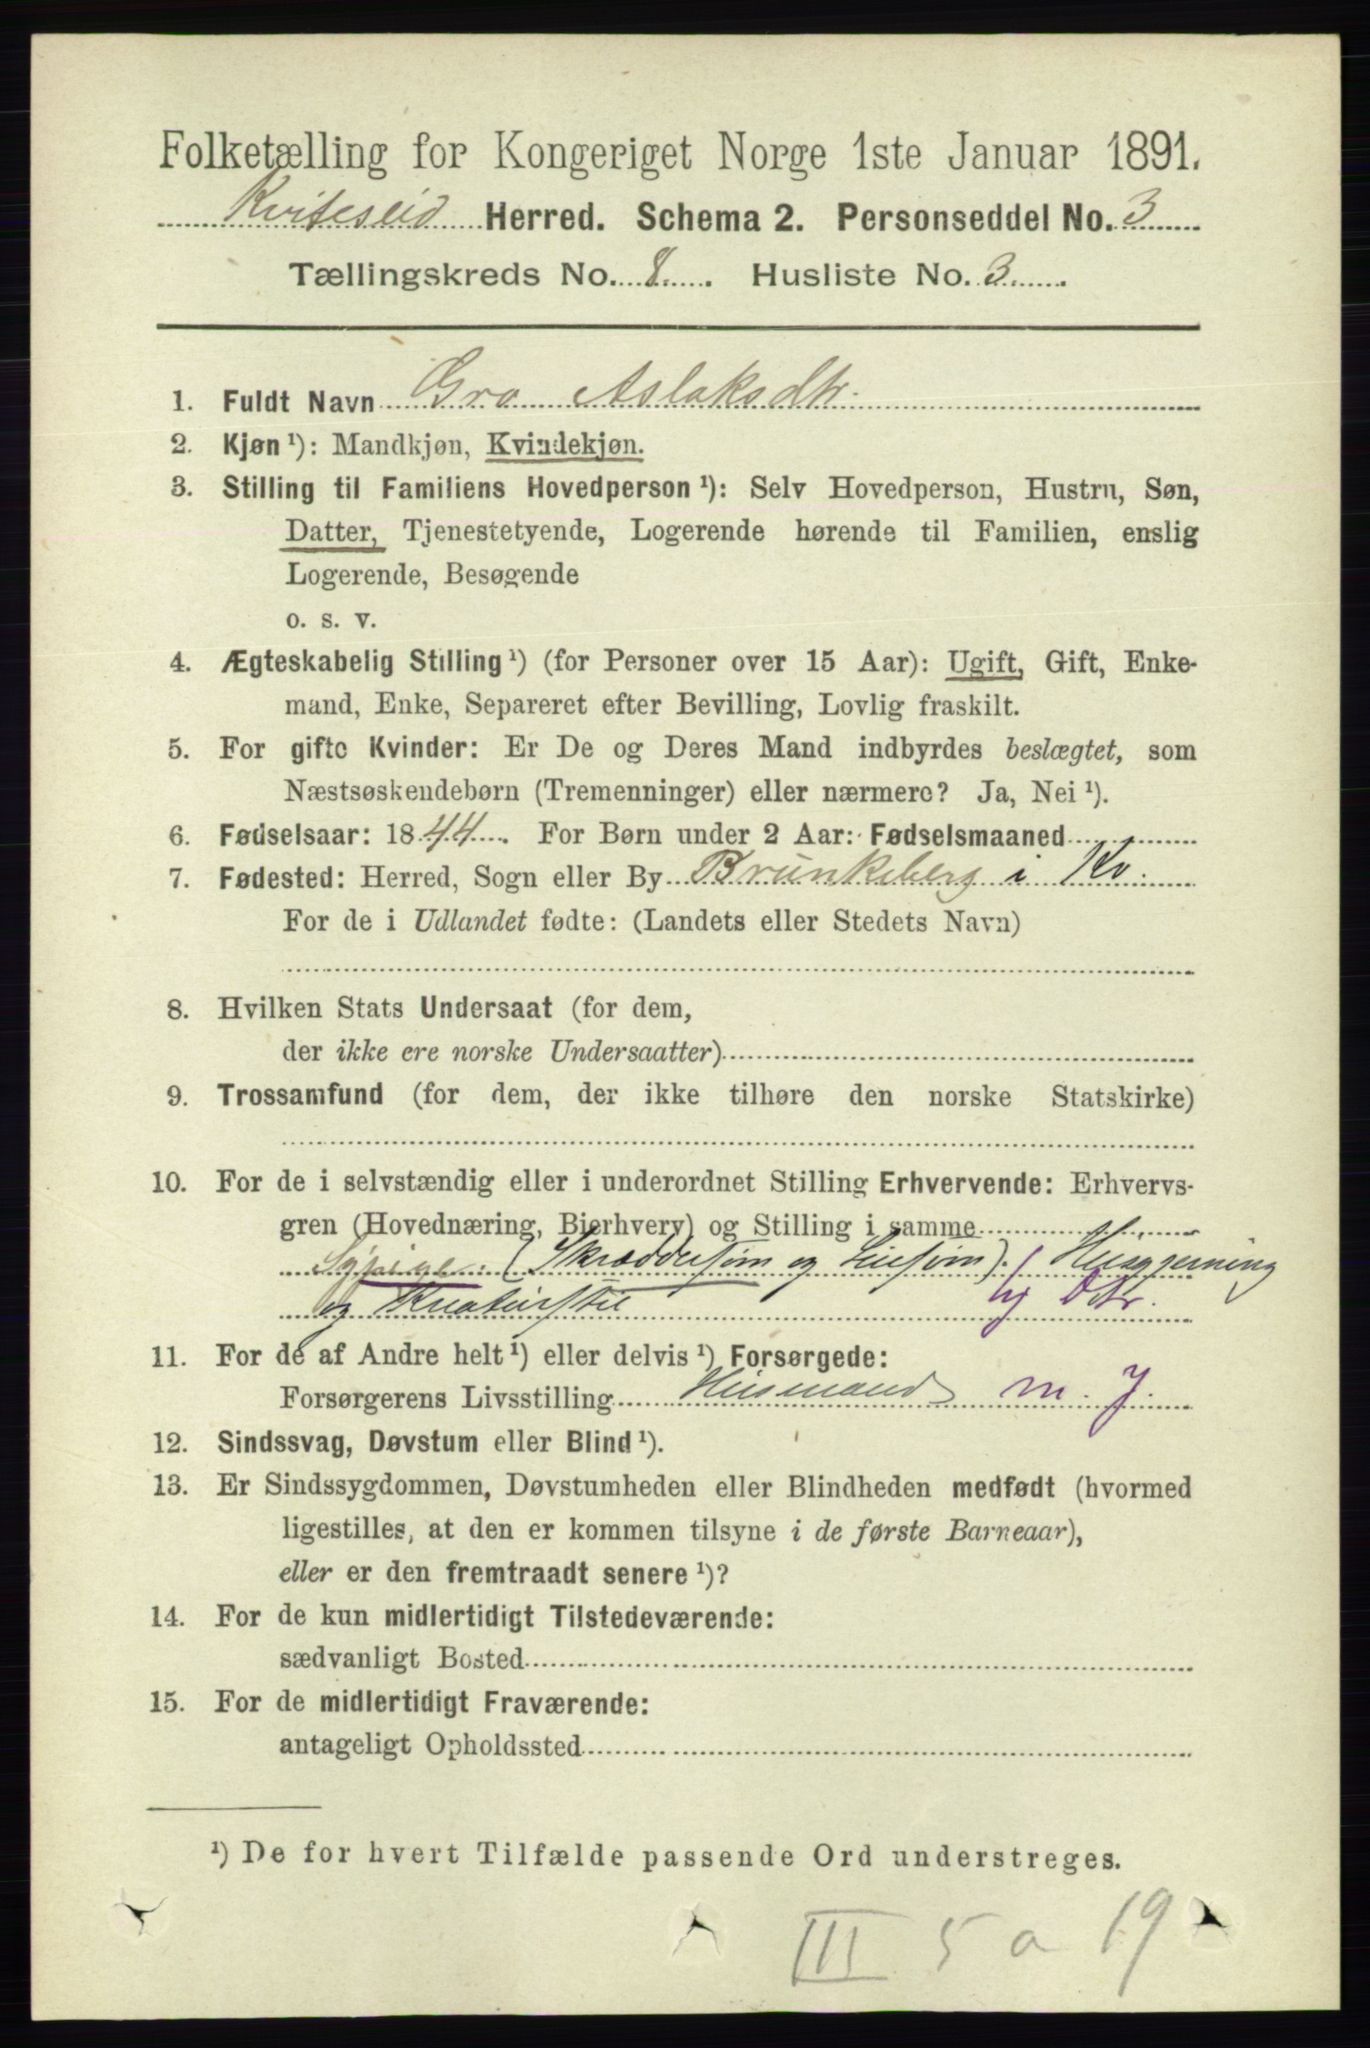 Folketælling for Kongeriget Norge 1ste Januar 1891.
Kviteseid Herred. Schema 2. Personseddel No. 3
Tællingskreds No. 8. Husliste No. 3
1. Fuldt Navn Gro Aslaksdtr.
2. Kjøn ¹): Mandkjøn, Kvindekjøn.
3. Stilling til Familiens Hovedperson ¹): Selv Hovedperson, Hustru, Søn,
Datter, Tjenestetyende, Logerende hørende til Familien, enslig
Logerende, Besøgende
o. s. v.
4. Ægteskabelig Stilling ¹) (for Personer over 15 Aar): Ugift, Gift, Enke-
mand, Enke, Separeret efter Bevilling, Lovlig fraskilt.
5. For gifte Kvinder: Er De og Deres Mand indbyrdes beslægtet, som
Næstsøskendebørn (Tremenninger) eller nærmere? Ja, Nei ¹).
6. Fødselsaar: 1844. For Børn under 2 Aar: Fødselsmaaned
7. Fødested: Herred, Sogn eller By Brunkeberg i Kv.
For de i Udlandet fødte: (Landets eller Stedets Navn)
8. Hvilken Stats Undersaat (for dem,
der ikke ere norske Undersaatter)
9. Trossamfund (for dem, der ikke tilhøre den norske Statskirke)
10. For de i selvstændig eller i underordnet Stilling Erhvervende: Erhvervs-
gren (Hovednæring, Bierhverv) og Stilling i samme
Sypige. (Skræddersøm og Linsøm). Husgjerning
og Kreaturstel hj Dtr.
11. For de af Andre helt ¹) eller delvis ¹) Forsørgede:
Forsørgerens Livsstilling Husmand m. J.
12. Sindssvag, Døvstum eller Blind ¹).
13. Er Sindssygdommen, Døvstumheden eller Blindheden medfødt (hvormed
ligestilles, at den er kommen tilsyne i de første Barneaar),
eller er den fremtraadt senere ¹)?
14. For de kun midlertidigt Tilstedeværende:
sædvanligt Bosted
15. For de midlertidigt Fraværende:
antageligt Opholdssted
¹) De for hvert Tilfælde passende Ord understreges.
III 5 a 19